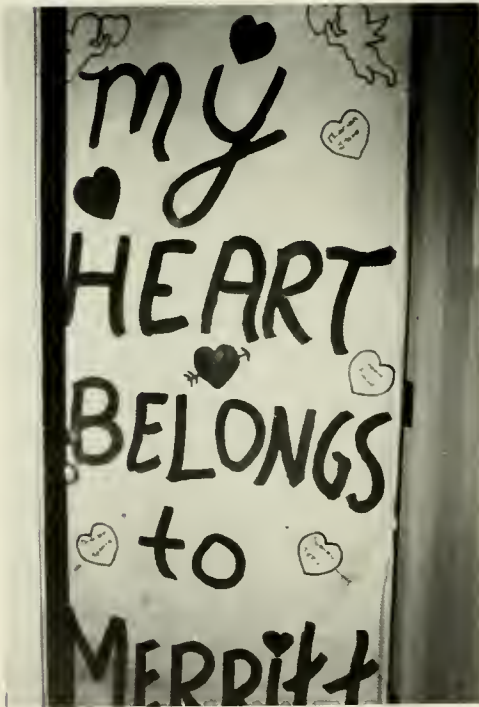 my
HEART
BELONGS
to
MERRitt